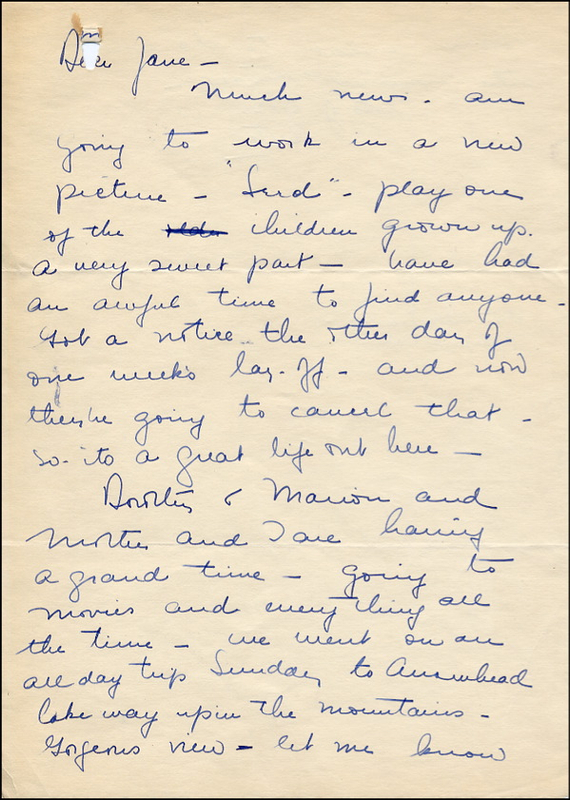 Dear Jane -
Much news. am
going to work in a new
picture - "Seed" - play one
of the older children grown up.
a very sweet part - have had
an awful time to find anyone -
Got a notice the other day of
one weeks lay-off - and now
they're going to cancel that -
so- its a great life out here -
Dorothy & Marion and
Mother and I are having
a grand time - Going to
movies and everything all
the time - we went on an
all day trip Sunday to Arrowhead
Lake way up in the mountains -
Gorgeous view - let me know